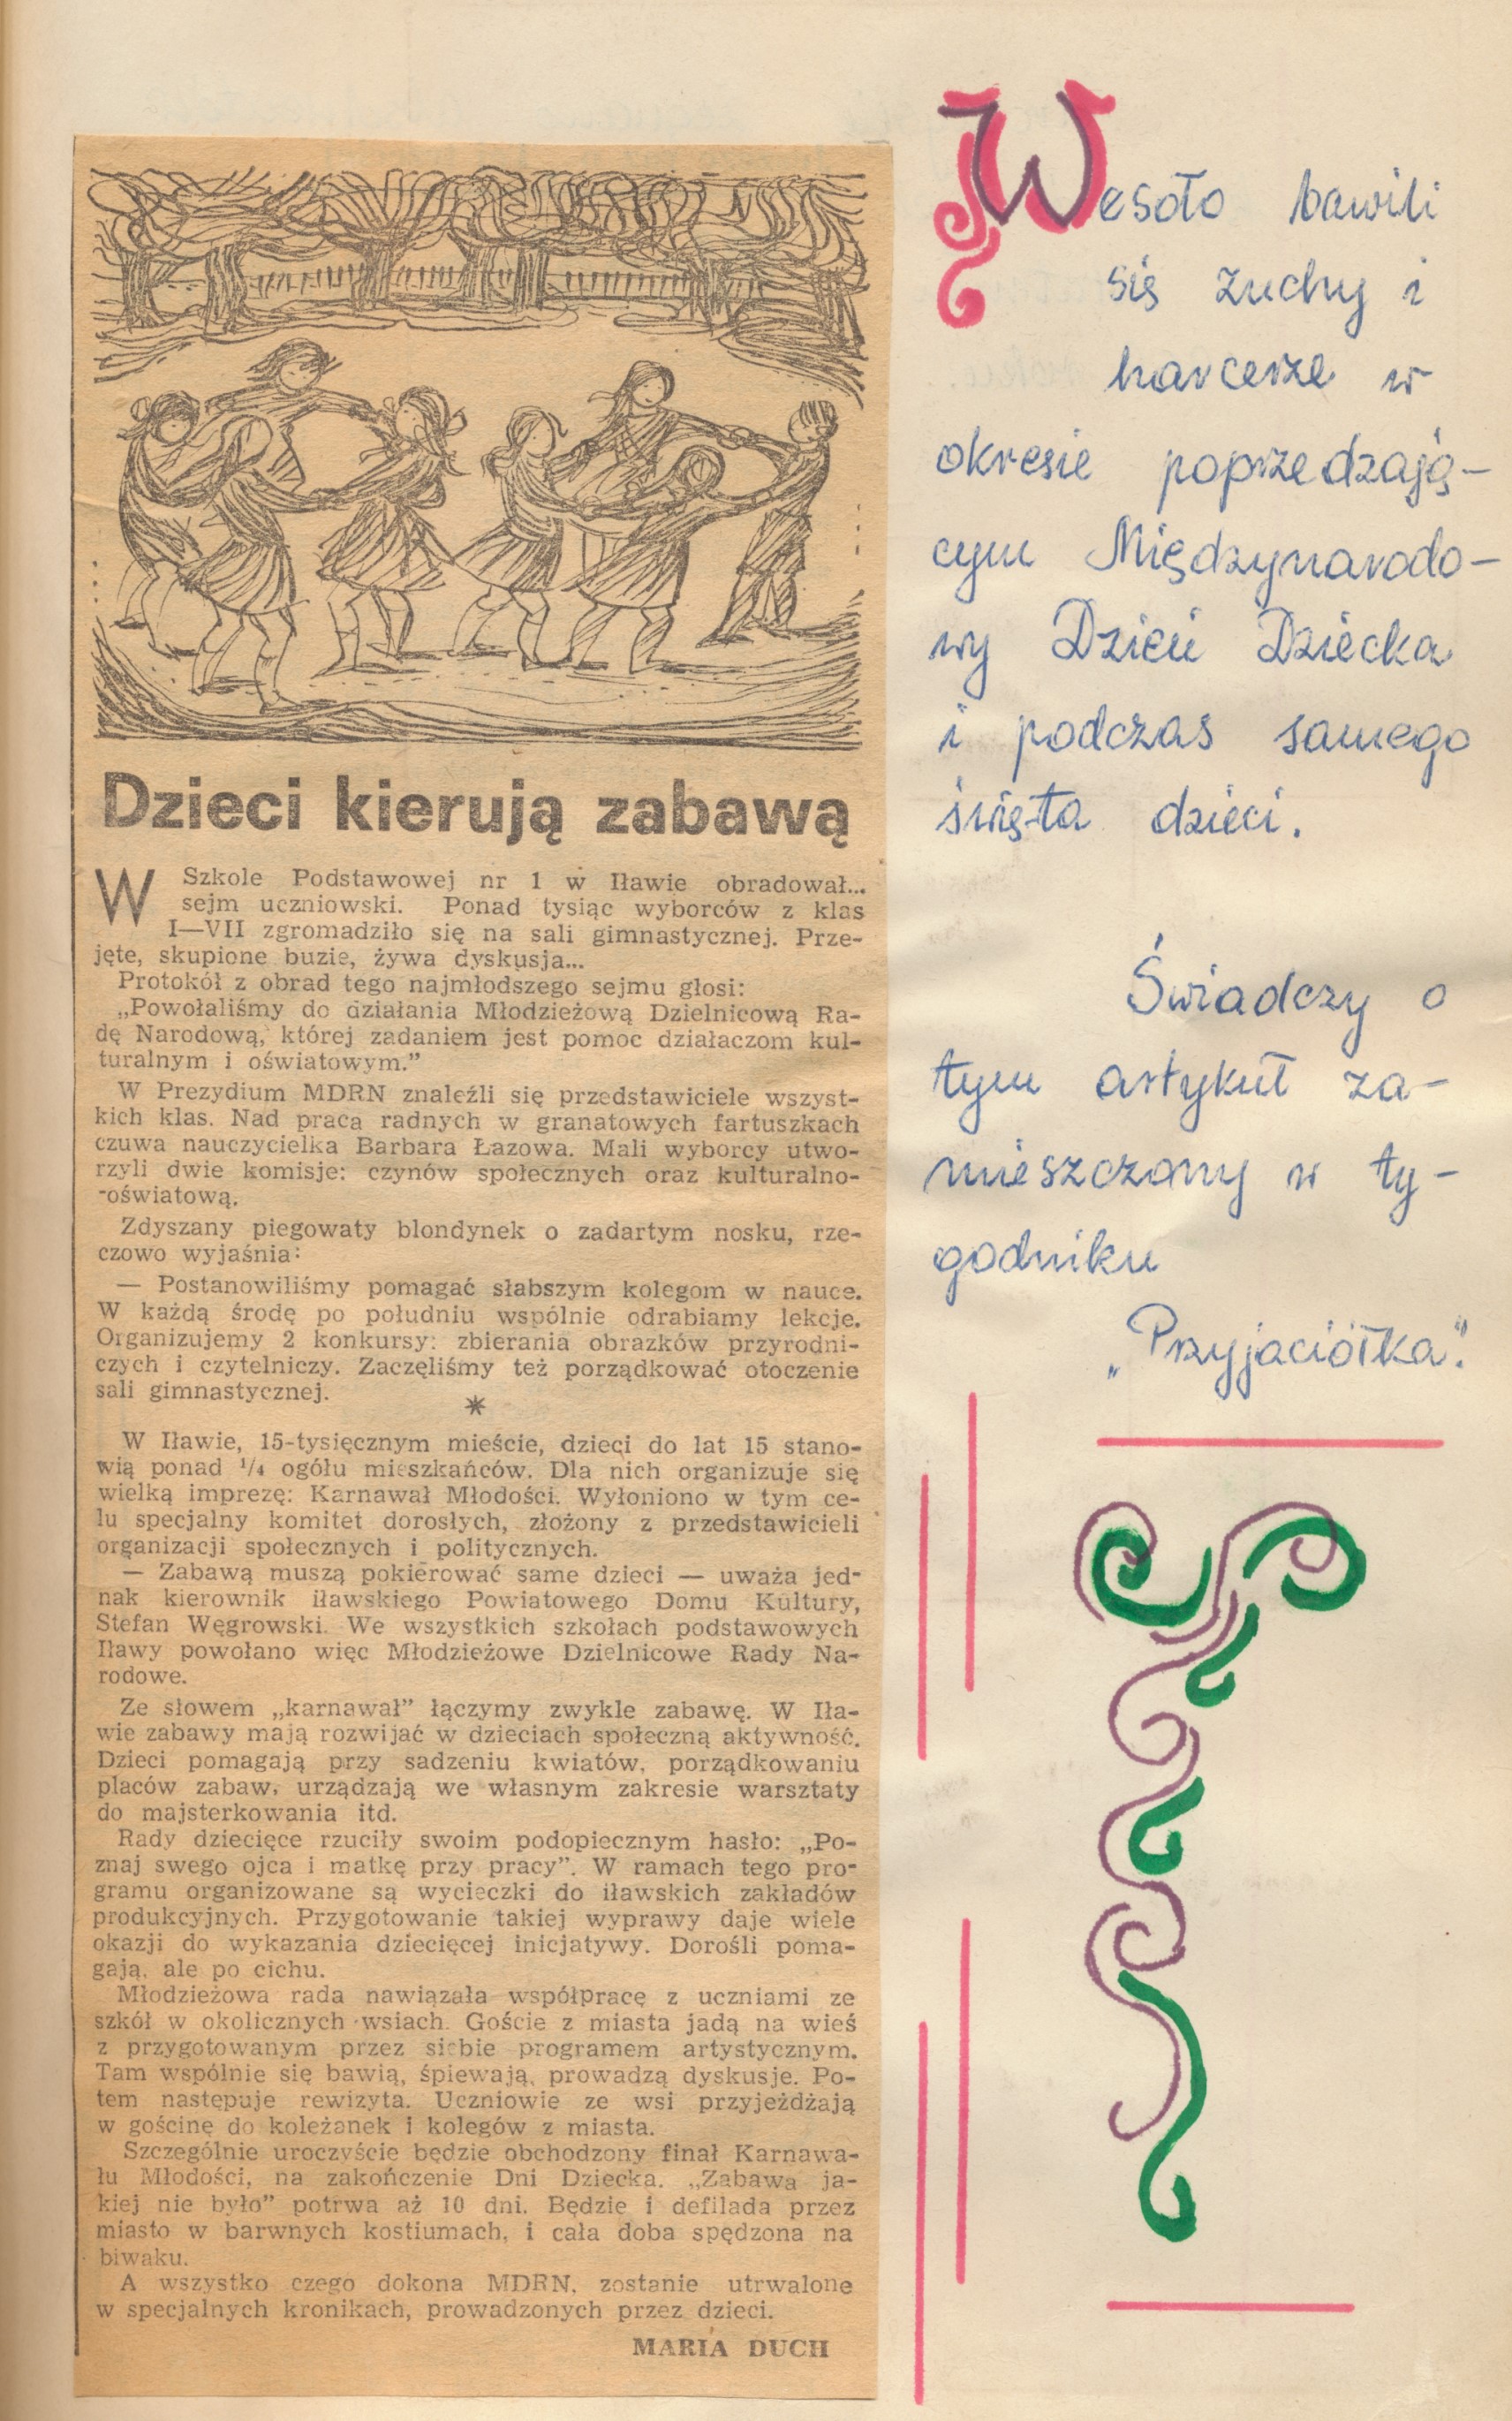 Dzieci kierują zabawą
W Szkole Podstawowej nr 1 w Iławie obradował...
sejm uczniowski. Ponad tysiąc wyborców z klas
I—VII zgromadziło się na sali gimnastycznej. Prze-
jęte, skupione buzie, żywa dyskusja...
Protokół z obrad tego najmłodszego sejmu głosi:
„Powołaliśmy do działania Młodzieżową Dzielnicową Ra-
dę Narodową, której zadaniem jest pomoc działaczom kul-
turalnym i oświatowym.”
W Prezydium MDRN znaleźli się przedstawiciele wszyst-
kich klas. Nad pracą radnych w granatowych fartuszkach
czuwa nauczycielka Barbara Łazowa. Mali wyborcy utwo-
rzyli dwie komisje: czynów społecznych oraz kulturalno-
-oświatową.
Zdyszany piegowaty blondynek o zadartym nosku, rze-
czowo wyjaśnia:
— Postanowiliśmy pomagać słabszym kolegom w nauce.
W każdą środę po południu wspólnie odrabiamy lekcje.
Organizujemy 2 konkursy: zbierania obrazków przyrodni-
czych i czytelniczy. Zaczęliśmy też porządkować otoczenie
sali gimnastycznej.
*
W Iławie, 15-tysięcznym mieście, dzieci do lat 15 stano-
wią ponad 1/4 ogółu mieszkańców. Dla nich organizuje się
wielką imprezę: Karnawał Młodości. Wyłoniono w tym ce-
lu specjalny komitet dorosłych, złożony z przedstawicieli
organizacji społecznych i politycznych.
— Zabawą muszą pokierować same dzieci — uważa jed-
nak kierownik iławskiego Powiatowego Domu Kultury,
Stefan Węgrowski. We wszystkich szkołach podstawowych
Iławy powołano więc Młodzieżowe Dzielnicowe Rady Na-
rodowe.
Ze słowem „karnawał” łączymy zwykle zabawę. W Iła-
wie zabawy mają rozwijać w dzieciach społeczną aktywność.
Dzieci pomagają przy sadzeniu kwiatów, porządkowaniu
placów zabaw, urządzają we własnym zakresie warsztaty
do majsterkowania itd.
Rady dziecięce rzuciły swoim podopiecznym hasło: „Po-
znaj swego ojca i matkę przy pracy”. W ramach tego pro-
gramu organizowane są wycieczki do iławskich zakładów
produkcyjnych. Przygotowanie takiej wyprawy daje wiele
okazji do wykazania dziecięcej inicjatywy. Dorośli poma-
gają, ale po cichu.
Młodzieżowa rada nawiązała współpracę z uczniami ze
szkół w okolicznych wsiach. Goście z miasta jadą na wieś
z przygotowanym przez siebie programem artystycznym.
Tam wspólnie się bawią, śpiewają, prowadzą dyskusje. Po-
tem następuje rewizyta. Uczniowie ze wsi przyjeżdżają
w gościnę do koleżanek i kolegów z miasta.
Szczególnie uroczyście będzie obchodzony finał Karnawa-
łu Młodości, na zakończenie Dni Dziecka. „Zabawa ja-
kiej nie było” potrwa aż 10 dni. Będzie i defilada przez
miasto w barwnych kostiumach, i cała doba spędzona na
biwaku.
A wszystko czego dokona MDRN, zostanie utrwalone
w specjalnych kronikach, prowadzonych przez dzieci.
MARIA DUCH
Wesoło bawili
się zuchy i
harcerze w
okresie poprzedzają-
cym Międzynarodo-
wy Dzień Dziecka
i podczas samego
święta dzieci.
Świadczy o
tym artykuł za-
mieszczony w ty-
godniku
„Przyjaciółka”.